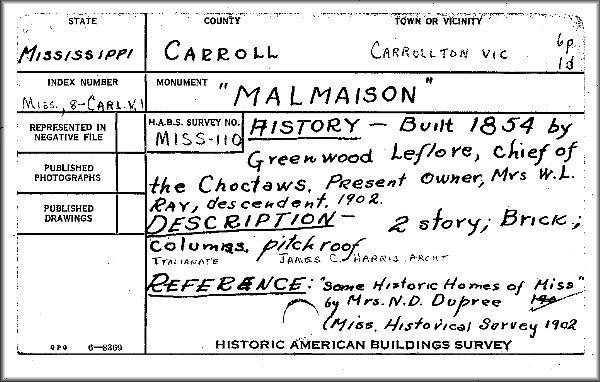 STATE COUNTY TOWN OR VICINITY
MISSISSIPPI CARROLL CARROLLTON VIC 6p
1d
INDEX NUMBER MONUMENT
MISS., 8-CARL.V,1 "MALMAISON"
REPRESENTED IN NEGATIVE FILE
H.A.B.S. SURVEY NO.
MISS-110
HISTORY — Built 1854 by
Greenwood Leflore, chief of
PUBLISHED PHOTOGRAPHS
the Choctaws. Present owner, Mrs W.L.
RAY, descendent. 1902.
PUBLISHED DRAWINGS
DESCRIPTION — 2 story; Brick;
Columns. pitch roof
ITALIANATE JAMES C. HARRIS, ARCHT
REFERENCE: "Some Historic Homes of Miss"
by Mrs. N.D. Dupree
(Miss. Historical Survey 1902
GPO 6—8369 HISTORIC AMERICAN BUILDINGS SURVEY